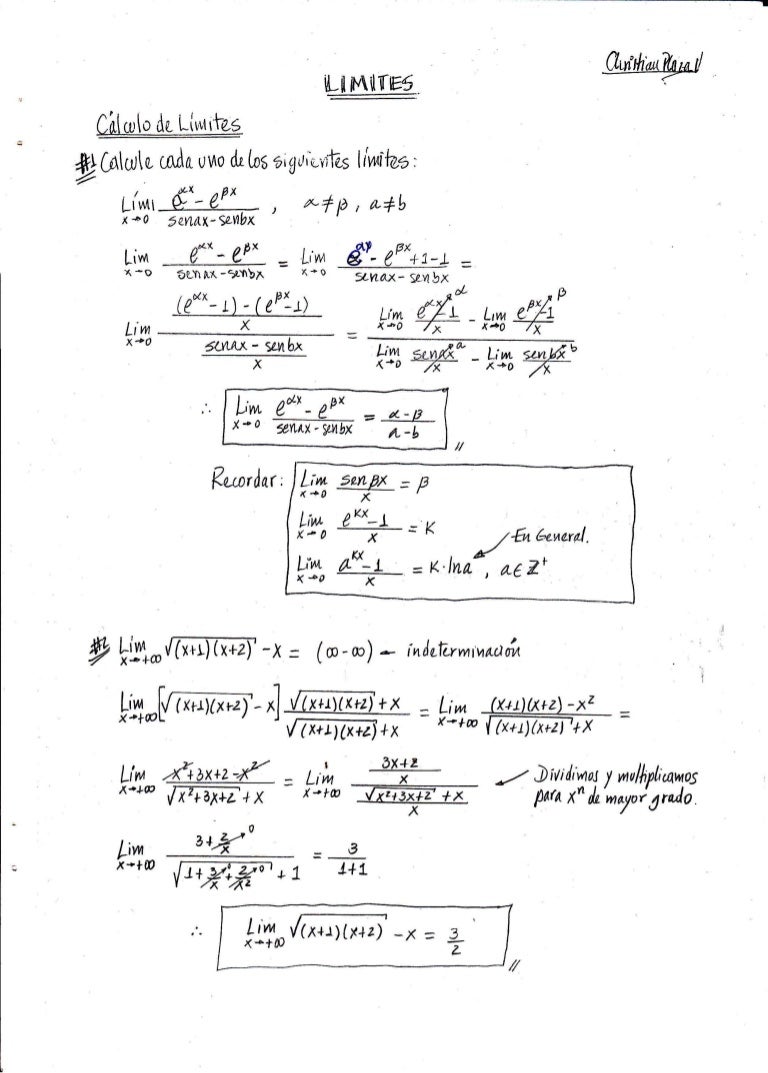 Christian Plaza V
LIMITES
Cálculo de Límites
#1 Calcule cada uno de los siguientes límites:
Lími x→0 (e^αx - e^βx)/(senax - senbx) , α ≠ β , a ≠ b
Lim x→0 (e^αx - e^βx)/(senax - senbx) = Lim x→0 (e^αx - e^βx + 1 - 1)/(senax - senbx) =
Lim x→0 (((e^αx - 1) - (e^βx - 1))/x)/((senax - senbx)/x) = (Lim x→0 (e^αx - 1)/x →α - Lim x→0 (e^βx - 1)/x →β)/(Lim x→0 senax/x →a - Lim x→0 senbx/x →b)
∴ Lim x→0 (e^αx - e^βx)/(senax - senbx) = (α - β)/(a - b) //
Recordar: Lim x→0 senβx/x = β
Lim x→0 (e^kx - 1)/x = K
En General.
Lim x→0 (a^kx - 1)/x = K·lna , a ∈ Z⁺
#2 Lim x→+∞ √((x+1)(x+2)) - x = (∞ - ∞) – indeterminación
Lim x→+∞ [√((x+1)(x+2)) - x] (√((x+1)(x+2)) + x)/(√((x+1)(x+2)) + x) = Lim x→+∞ ((x+1)(x+2) - x²)/(√((x+1)(x+2)) + x) =
Lim x→+∞ (x² + 3x + 2 - x²)/(√(x² + 3x + 2) + x) = Lim x→+∞ ((3x + 2)/x)/((√(x² + 3x + 2) + x)/x)
Dividimos y multiplicamos
para xⁿ de mayor grado.
Lim x→+∞ (3 + 2/x →0)/(√(1 + 3/x →0 + 2/x² →0) + 1) = 3/(1+1)
∴ Lim x→+∞ √((x+1)(x+2)) - x = 3/2 //